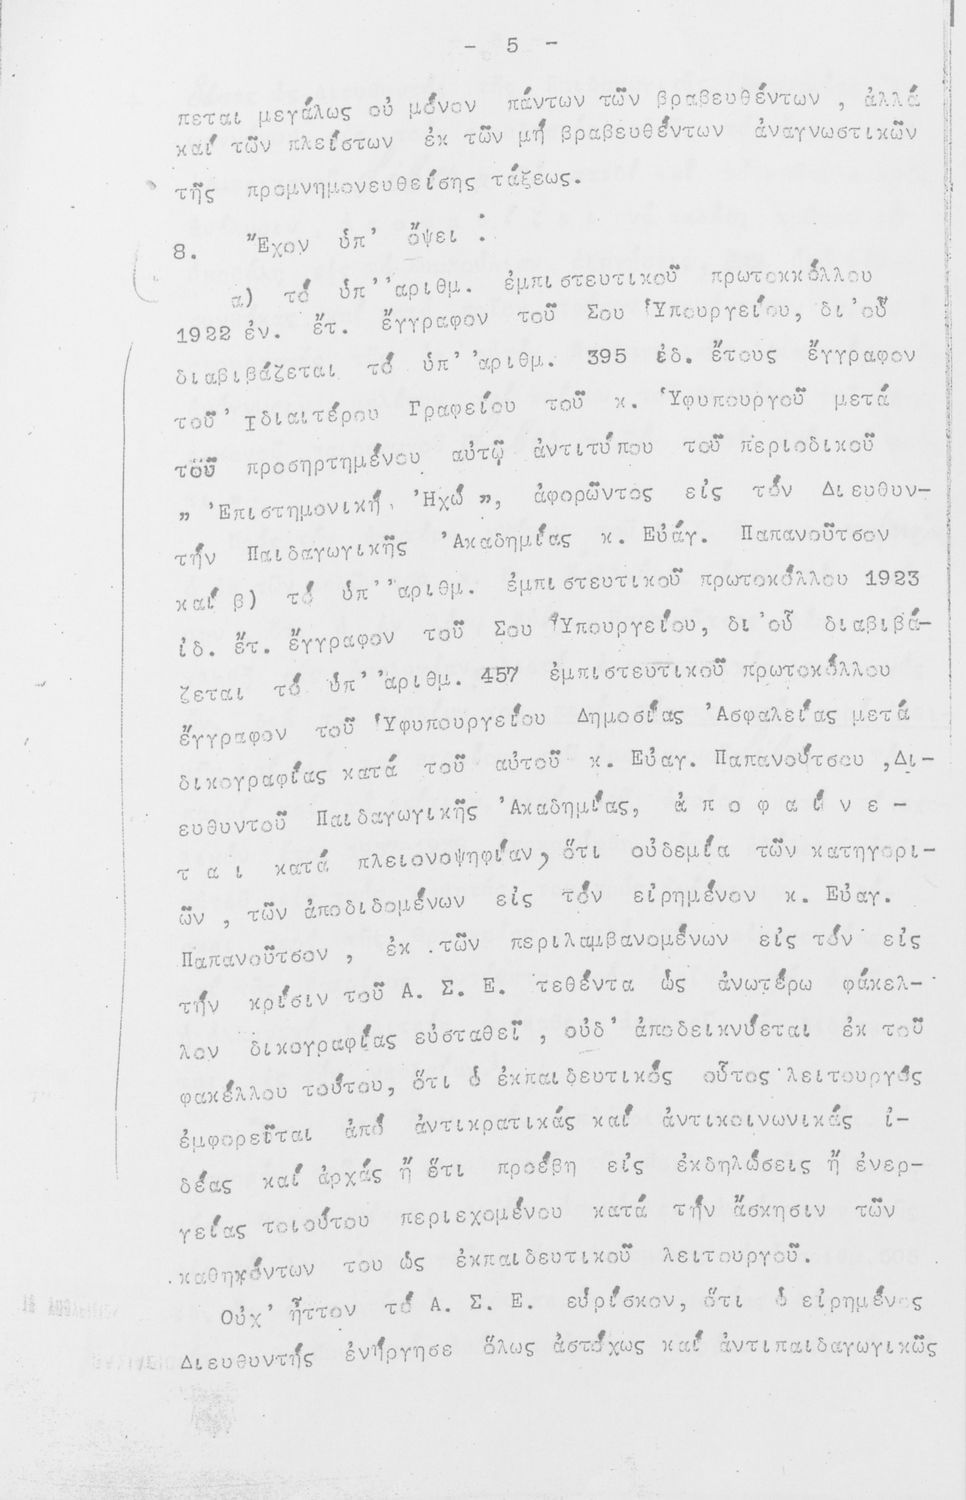 - 5 -
πεται μεγάλως οὐ μόνον πάντων τῶν βραβευθέντων , ἀλλά
καί τῶν πλείστων ἐκ τῶν μή βραβευθέντων ἀναγνωστικῶν
τῆς προμνημονευθείσης τάξεως.
8. Ἔχον ὑπ' ὄψει :
α) τό ὑπ' ἀριθμ. ἐμπιστευτικοῦ πρωτοκκόλλου
1922 ἐν. ἔτ. ἔγγραφον τοῦ Σου Ὑπουργείου, δι 'οὗ
διαβιβάζεται τό ὑπ' ἀριθμ. 395 ἐδ. ἔτους ἔγγραφον
τοῦ' Ιδιαιτέρου Γραφείου τοῦ κ. Ὑφυπουργοῦ μετά
τοῦ προσηρτημένου αὐτῷ ἀντιτύπου τοῦ περιοδικοῦ
„ Ἐπιστημονική Ἠχώ „, ἀφορῶντος εἰς τόν Διευθυν-
τήν Παιδαγωγικῆς Ἀκαδημίας κ. Εὐάγ. Παπανοῦτσον
καί β) τό ὑπ' ἀριθμ. ἐμπιστευτικοῦ πρωτοκόλλου 1923
ἰδ. ἔτ. ἔγγραφον τοῦ Σου Ὑπουργείου, δι 'οὗ διαβιβά-
ζεται τό ὑπ' ἀριθμ. 457 ἐμπιστευτικοῦ πρωτοκόλλου
ἔγγραφον τοῦ Ὑφυπουργείου Δημοσίας Ἀσφαλείας μετά
δικογραφίας κατά τοῦ αὐτοῦ κ. Εὐαγ. Παπανούτσου ,Δι-
ευθυντοῦ Παιδαγωγικῆς Ἀκαδημίας, ἀ π ο φ α ί ν ε -
τ α ι κατά πλειονοψηφίαν, ὅτι οὐδεμία τῶν κατηγορι-
ῶν , τῶν ἀποδιδομένων εἰς τόν εἰρημένον κ. Εὐαγ.
Παπανοῦτσον , ἐκ τῶν περιλαμβανομένων εἰς τόν εἰς
τήν κρίσιν τοῦ Α. Σ. Ε. τεθέντα ὡς ἀνωτέρω φάκελ-
λον δικογραφίας εὐσταθεῖ , οὐδ' ἀποδεικνύεται ἐκ τοῦ
φακέλλου τούτου, ὅτι ὁ ἐκπαιδευτικός οὗτος λειτουργός
ἐμφορεῖται ἀπό ἀντικρατικάς καί ἀντικοινωνικάς ἰ-
δέας καί ἀρχάς ἤ ὅτι προέβη εἰς ἐκδηλώσεις ἤ ἐνερ-
γείας τοιούτου περιεχομένου κατά τήν ἄσκησιν τῶν
καθηκόντων του ὡς ἐκπαιδευτικοῦ λειτουργοῦ.
Οὐχ' ἧττον τό Α. Σ. Ε. εὑρίσκον, ὅτι ὁ εἰρημένος
Διευθυντής ἐνήργησε ὅλως ἀστόχως καί ἀντιπαιδαγωγικῶς